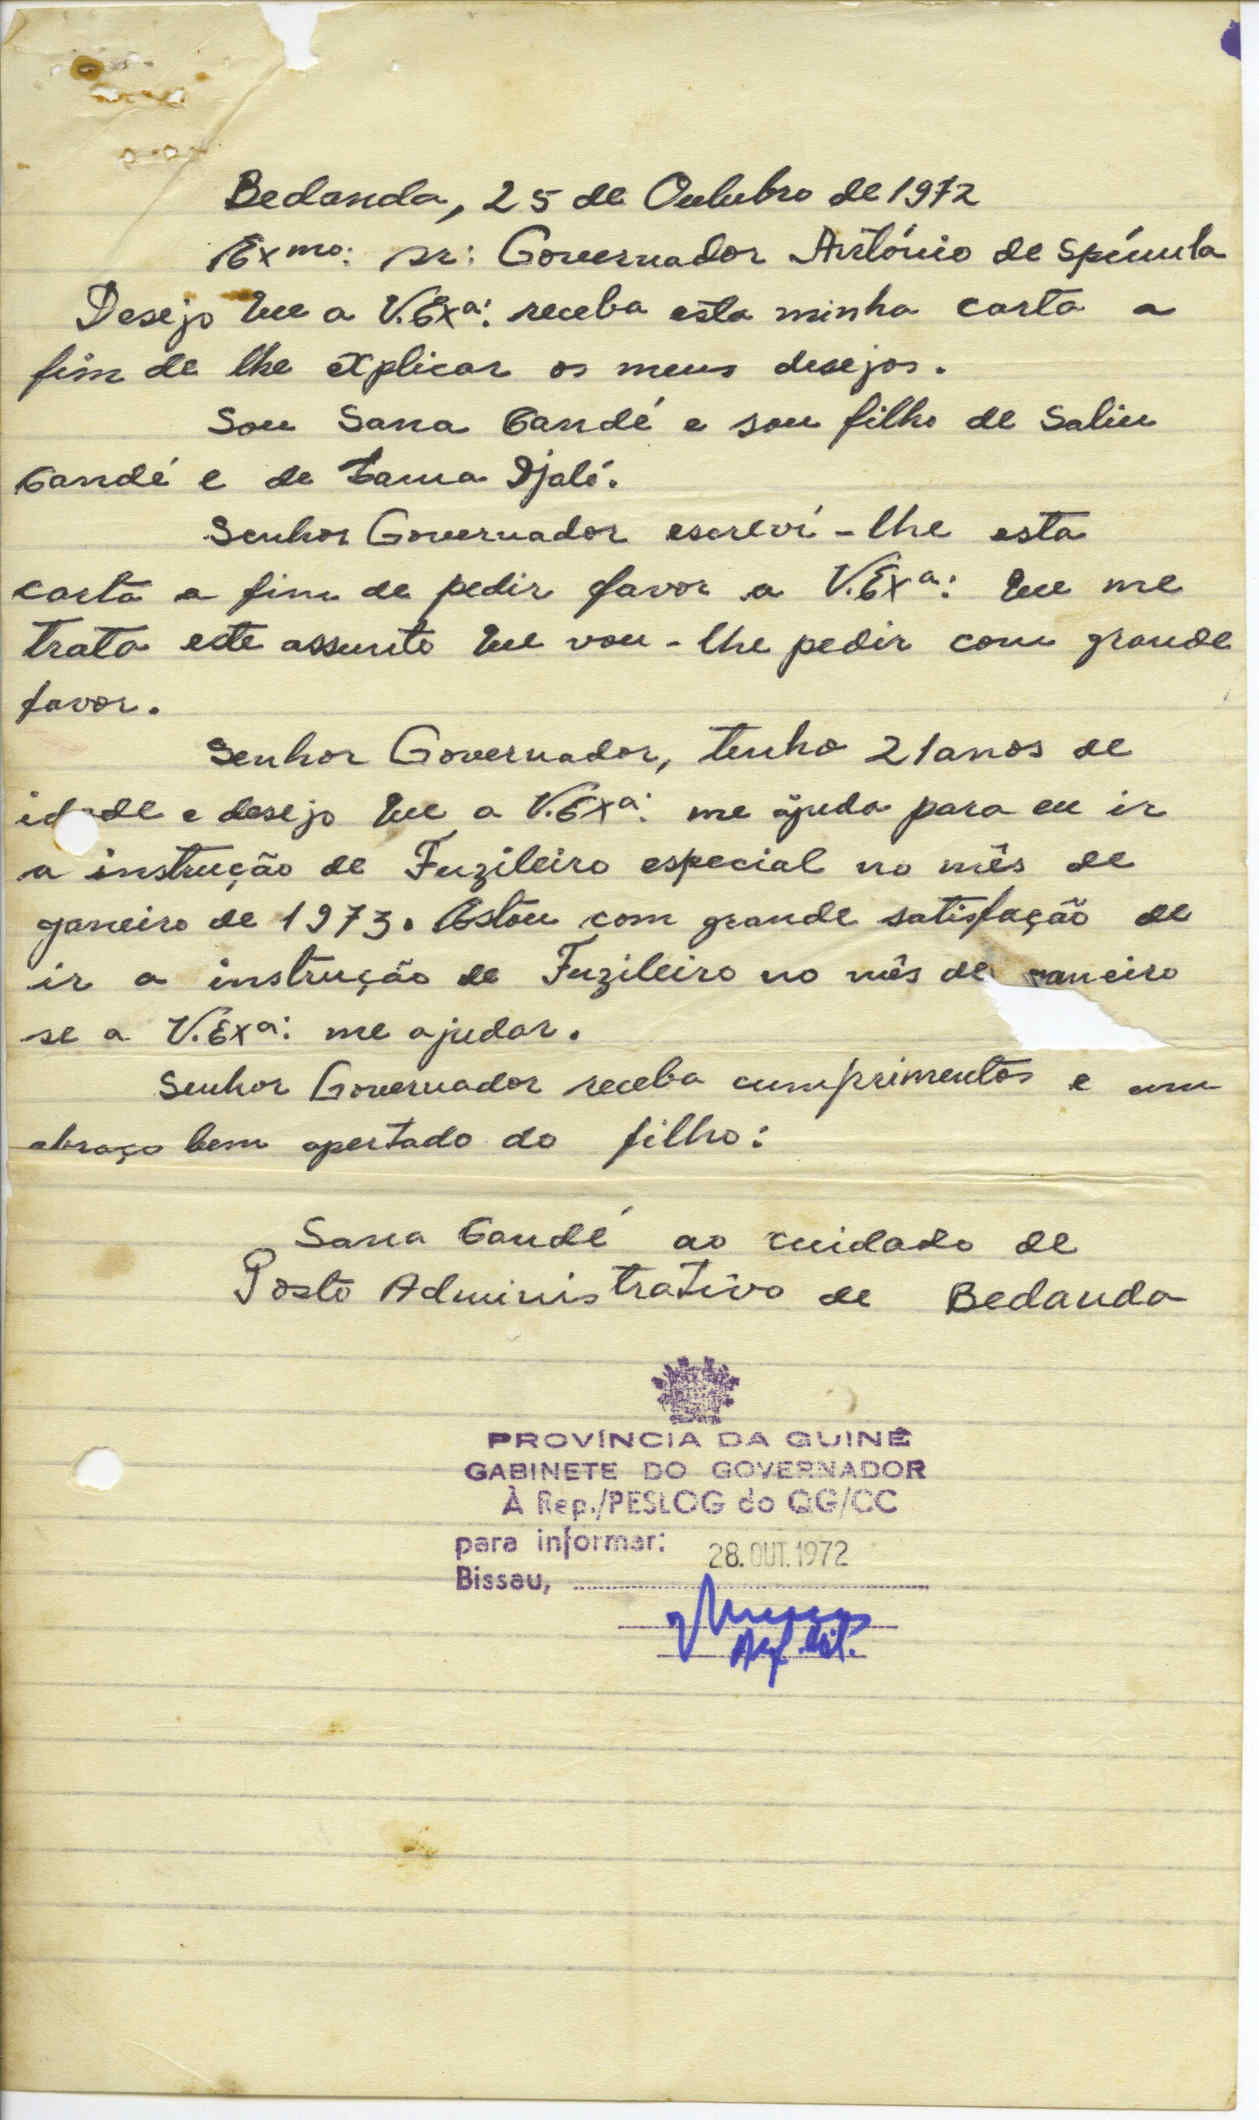 Bedanda, 25 de Outubro de 1972
Exmo: sr: Governador António de Spínula
Desejo que a V.Exa: receba esta minha carta a
fim de lhe explicar os meus desejos.
Sou Sana Candé e sou filho de Saliu
Candé e de Djaló.
Senhor Governador escreví-lhe esta
carta a fim de pedir favor a V.Exa: que me
trata este assunto que vou-lhe pedir com grande
favor.
Senhor Governador, tenho 21 anos de
idade e desejo que a V.Exa: me ajuda para eu ir
a instrução de Fuzileiro especial no mês de
janeiro de 1973. Estou com grande satisfação de
ir a instrução de Fuzileiro no mês de janeiro
se a V.Exa: me ajudar.
Senhor Governador receba cumprimentos e um
abraço bem apertado do filho:
Sana Candé ao cuidado de
Posto Administrativo de Bedanda
PROVÍNCIA DA GUINÉ
GABINETE DO GOVERNADOR
À Rep./PESLOG do QG/CC
para informar:
28. OUT. 1972
Bissau,